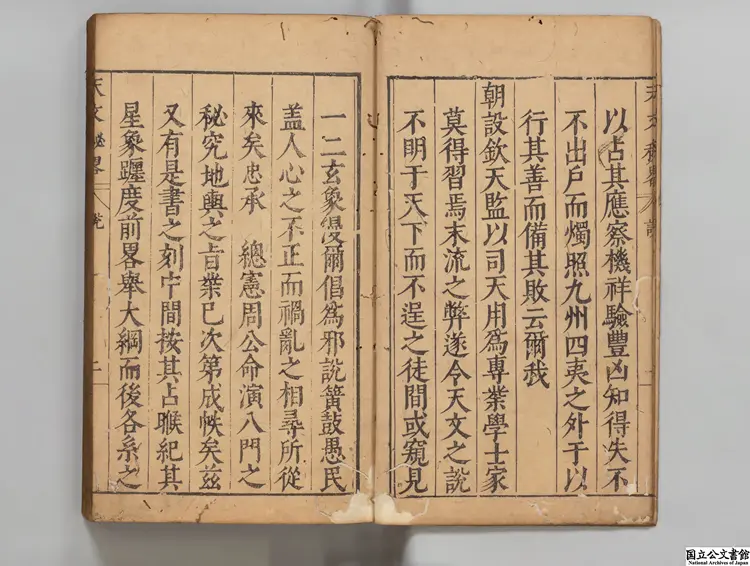 以占其應察機祥驗豐凶知得失不
不出戶而燭照九州四夷之外于以
行其善而備其敗云爾我
朝設欽天監以司天用為專業學士家
莫得習焉末流之弊遂令天文之說
不明于天下而不逞之徒間或窺見
一二玄象漫爾倡為邪說簧鼓愚民
盖人心之不正而禍亂之相尋所從
來矣忠承 總憲周公命演八門之
秘究地輿之旨業已次第成帙矣茲
又有是書之刻中間按其占睺紀其
星象躔度前畧舉大綱而後各系之
天文秘畧
国立公文書館
National Archives of Japan